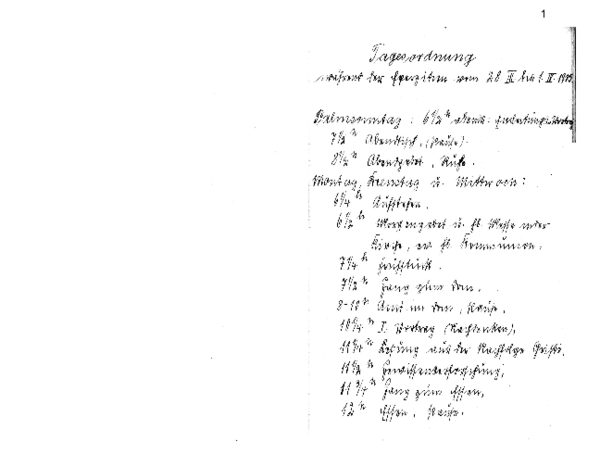 1
Tagesordnung
während der Exerzitien vom 28 III bis 1. IV.
Palmsonntag: 6 1/2 h abends: Einleitungsvortrag
7 1/2 h Abendtisch, (Pause).
8 1/2 h Abendgebet, Ruhe.
Montag, Dienstag u. Mittwoch:
6 1/4 h Aufstehen.
6 1/2 h Morgengebet u. hl. Messe in der
Kirche, ev. hl. Kommunion.
7 1/4 h Frühstück.
7 1/2 h Gang zum Dom.
8-10 h Amt im Dom, Pause.
10 1/4 h I. Vortrag (Nachdenken),
11 1/4 h Lesung aus der Nachfolge Christi.
11 1/2 h Gewissenserforschung,
11 3/4 h Gang zum Essen,
12 h Essen, Pause.